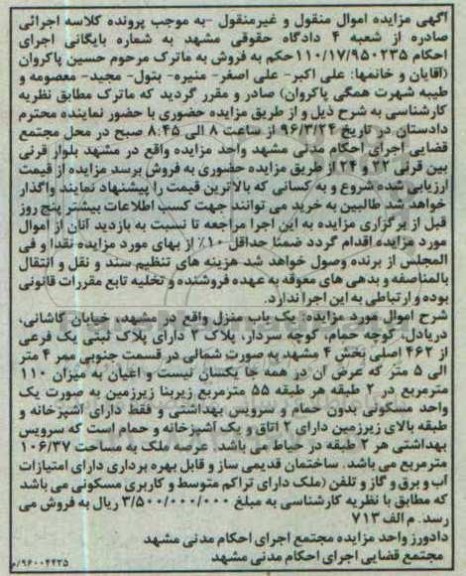 آگهی مزایده اموال منقول و غیرمنقول -به موجب پرونده کلاسه اجرائی
صادره از شعبه ۴ دادگاه حقوقی مشهد به شماره بایگانی اجرای
احکام ۱۱۰/۱۷/۹۵۰۲۳۵حکم به فروش به ماترک مرحوم حسین پاکروان
(آقایان و خانمها: علی اکبر- علی اصغر- منیره- بتول- مجید- معصومه و
طیبه شهرت همگی پاکروان) صادر و مقرر گردید که ماترک مطابق نظریه
کارشناسی به شرح ذیل و از طریق مزایده حضوری با حضور نماینده محترم
دادستان در تاریخ ۹۶/۳/۲۴ از ساعت ۸ الی ۸:۴۵ صبح در محل مجتمع
قضایی اجرای احکام مدنی مشهد واحد مزایده واقع در مشهد بلوار قرنی
بین قرنی ۲۲ و ۲۴ از طریق مزایده حضوری به فروش برسد مزایده از قیمت
ارزیابی شده شروع و به کسانی که بالاترین قیمت را پیشنهاد نمایند واگذار
خواهد شد طالبین به خرید می توانند جهت کسب اطلاعات بیشتر پنج روز
قبل از برگزاری مزایده به این اجرا مراجعه تا نسبت به بازدید آنان از اموال
مورد مزایده اقدام گردد ضمنا حداقل ۱۰٪ از بهای مورد مزایده نقدا و فی
المجلس از برنده وصول خواهد شد هزینه های تنظیم سند و نقل و انتقال
بالمناصفه و بدهی های معوقه به عهده فروشنده و تخلیه تابع مقررات قانونی
بوده و ارتباطی به این اجرا ندارد.
شرح اموال مورد مزایده: یک باب منزل واقع در مشهد، خیابان کاشانی،
دریادل، کوچه حمام، کوچه سردار، پلاک ۳ دارای پلاک ثبتی یک فرعی
از ۴۶۲ اصلی بخش ۴ مشهد به صورت شمالی در قسمت جنوبی ممر ۴ متر
الی ۵ متر که عرض آن در همه جا یکسان نیست و اعیان به میزان ۱۱۰
مترمربع در ۲ طبقه هر طبقه ۵۵ مترمربع زیربنا زیرزمین به صورت یک
واحد مسکونی بدون حمام و سرویس بهداشتی و فقط دارای آشپزخانه و
طبقه بالای زیرزمین دارای ۲ اتاق و یک آشپزخانه و حمام است که سرویس
بهداشتی هر ۲ طبقه در حیاط می باشد. عرصه ملک به مساحت ۱۰۶/۳۷
مترمربع می باشد. ساختمان قدیمی ساز و قابل بهره برداری دارای امتیازات
آب و برق و گاز و تلفن (ملک دارای تراکم متوسط و کاربری مسکونی می باشد
که مطابق با نظریه کارشناسی به مبلغ ۳/۵۰۰/۰۰۰/۰۰۰ ریال به فروش می
رسد. م الف ۷۱۳
دادورز واحد مزایده مجتمع اجرای احکام مدنی مشهد
مجتمع قضایی اجرای احکام مدنی مشهد
۹۶۰۰۴۴۲۵/م